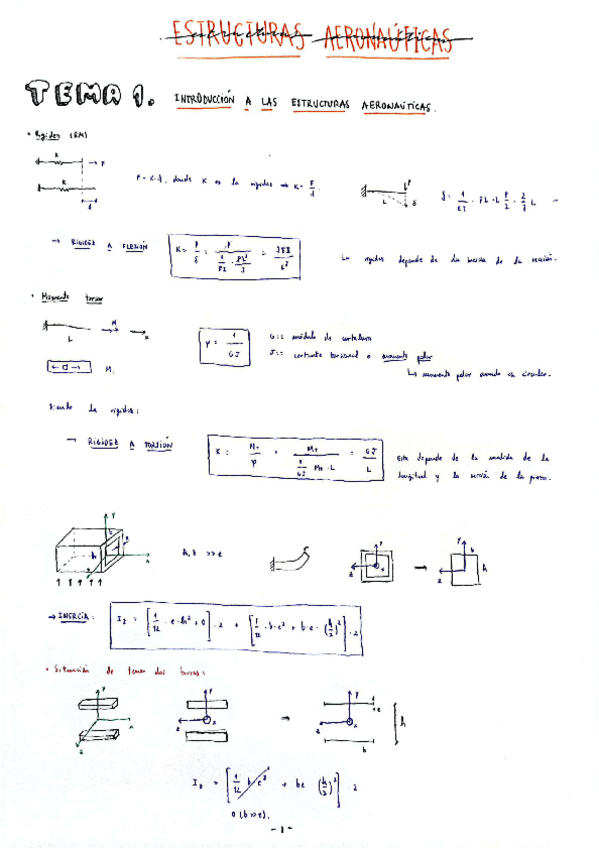 ESTRUCTURAS AERONAÚTICAS
TEMA 1. INTRODUCCIÓN A LAS ESTRUCTURAS AERONAÚTICAS.
• Rigidez (RM)
K F
K
F = K·δ, donde K es la rigidez → K = F/δ
P
L δ
→ RIGIDEZ A FLEXIÓN
K = P/δ = P / (1/EI · PL³/3) = 3EI/L³
La rigidez depende de la inercia de la sección.
• Momento torsor
L M x
φ = 1/GJ
G := módulo de cortadura
J := constante torsional o momento polar
↳ momento polar cuando es circular.
Siendo la rigidez:
→ RIGIDEZ A TORSIÓN
K = M_T/φ = M_T / (1/GJ · M_T · L) = GJ/L
Esta depende de la medida de la longitud y la sección de la pieza.
h, b >> e
→ INERCIA:
I_z = [1/12 · e · h³ + 0] · 2 + [1/12 · b · e³ + b · e · (h/2)²] · 2
• Situación de tener dos barras:
y x z
h
b
e
= [1/12 b e³ + be (h/2)²] 2
0 (b>>e).
- 1 -